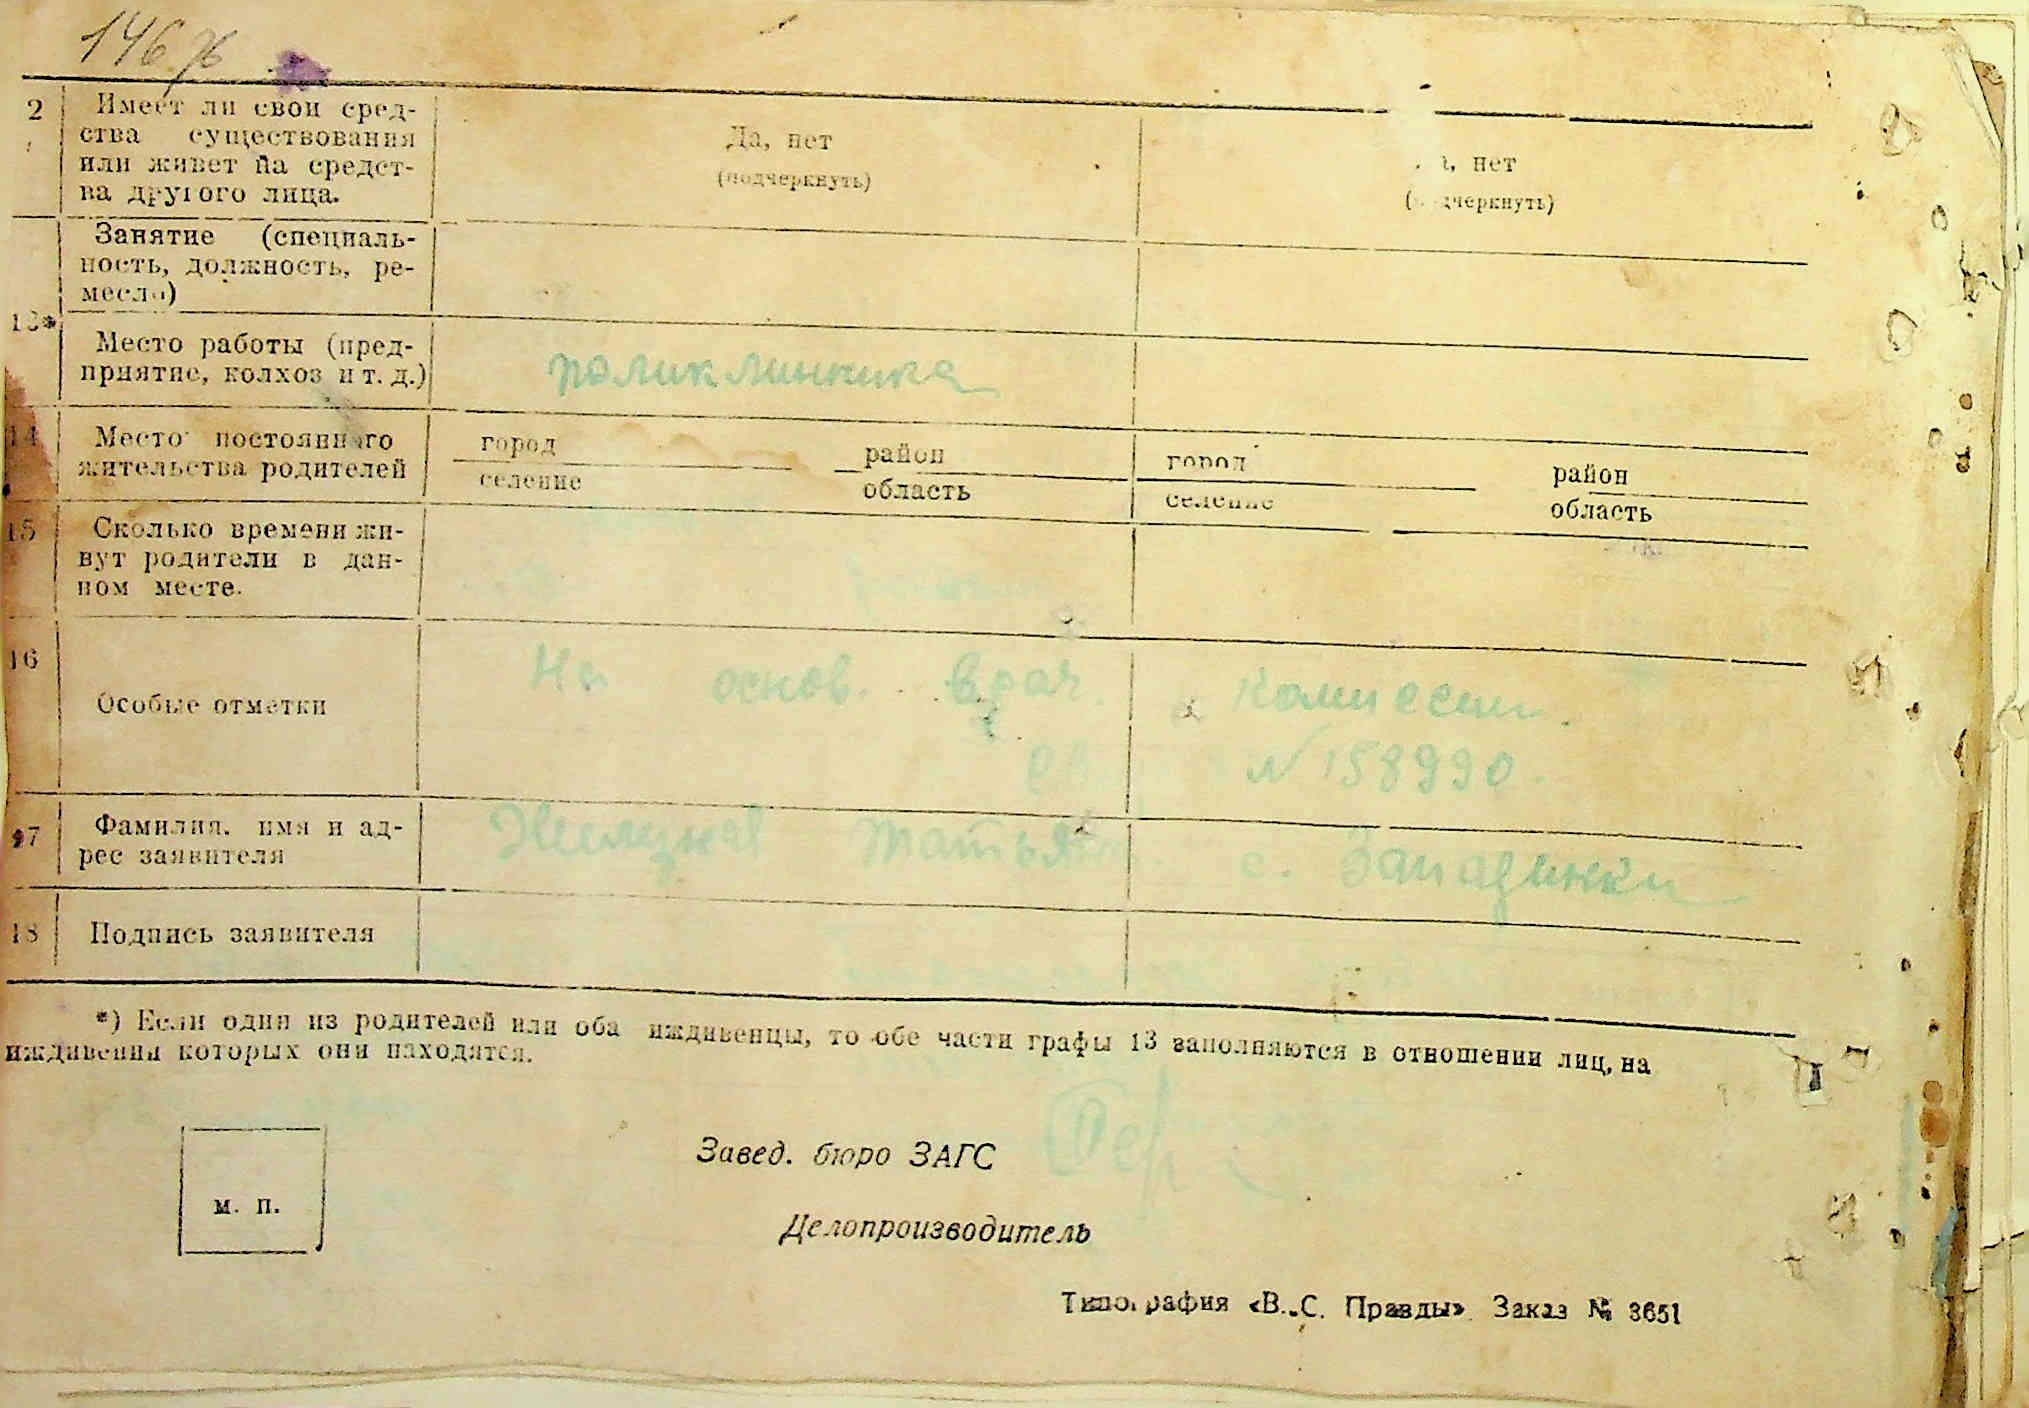 146
2 Имеет ли свои сред-
ства существования
или живет на средст-
ва другого лица.
Да, нет
(подчеркнуть)
нет
(подчеркнуть)
Занятие (специаль-
ность, должность, ре-
месло)
13*
Место работы (пред-
приятие, колхоз и т. д.)
поликлиника
14 Место постоянного
жительства родителей
город район город район
селение область селение область
15 Сколько времени жи-
вут родители в дан-
ном месте.
16 Особые отметки
На основ. врач. комиссии.
N 158990.
17 Фамилия. имя и ад-
рес заявителя
Татьяна с. Западинки
18 Подпись заявителя
*) Если один из родителей или оба иждивенцы, то обе части графы 13 заполняются в отношении лиц, на
иждивении которых они находятся.
Завед. бюро ЗАГС
м. п.
Делопроизводитель
Типография «В.-С. Правды» Заказ № 3651